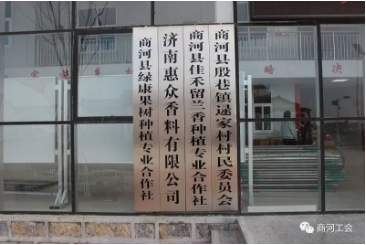 商河县绿康果树种植专业合作社
济南惠众香料有限公司
商河县佳禾留兰香种植专业合作社
商河县殷巷镇逯家村村民委员会
商河工会